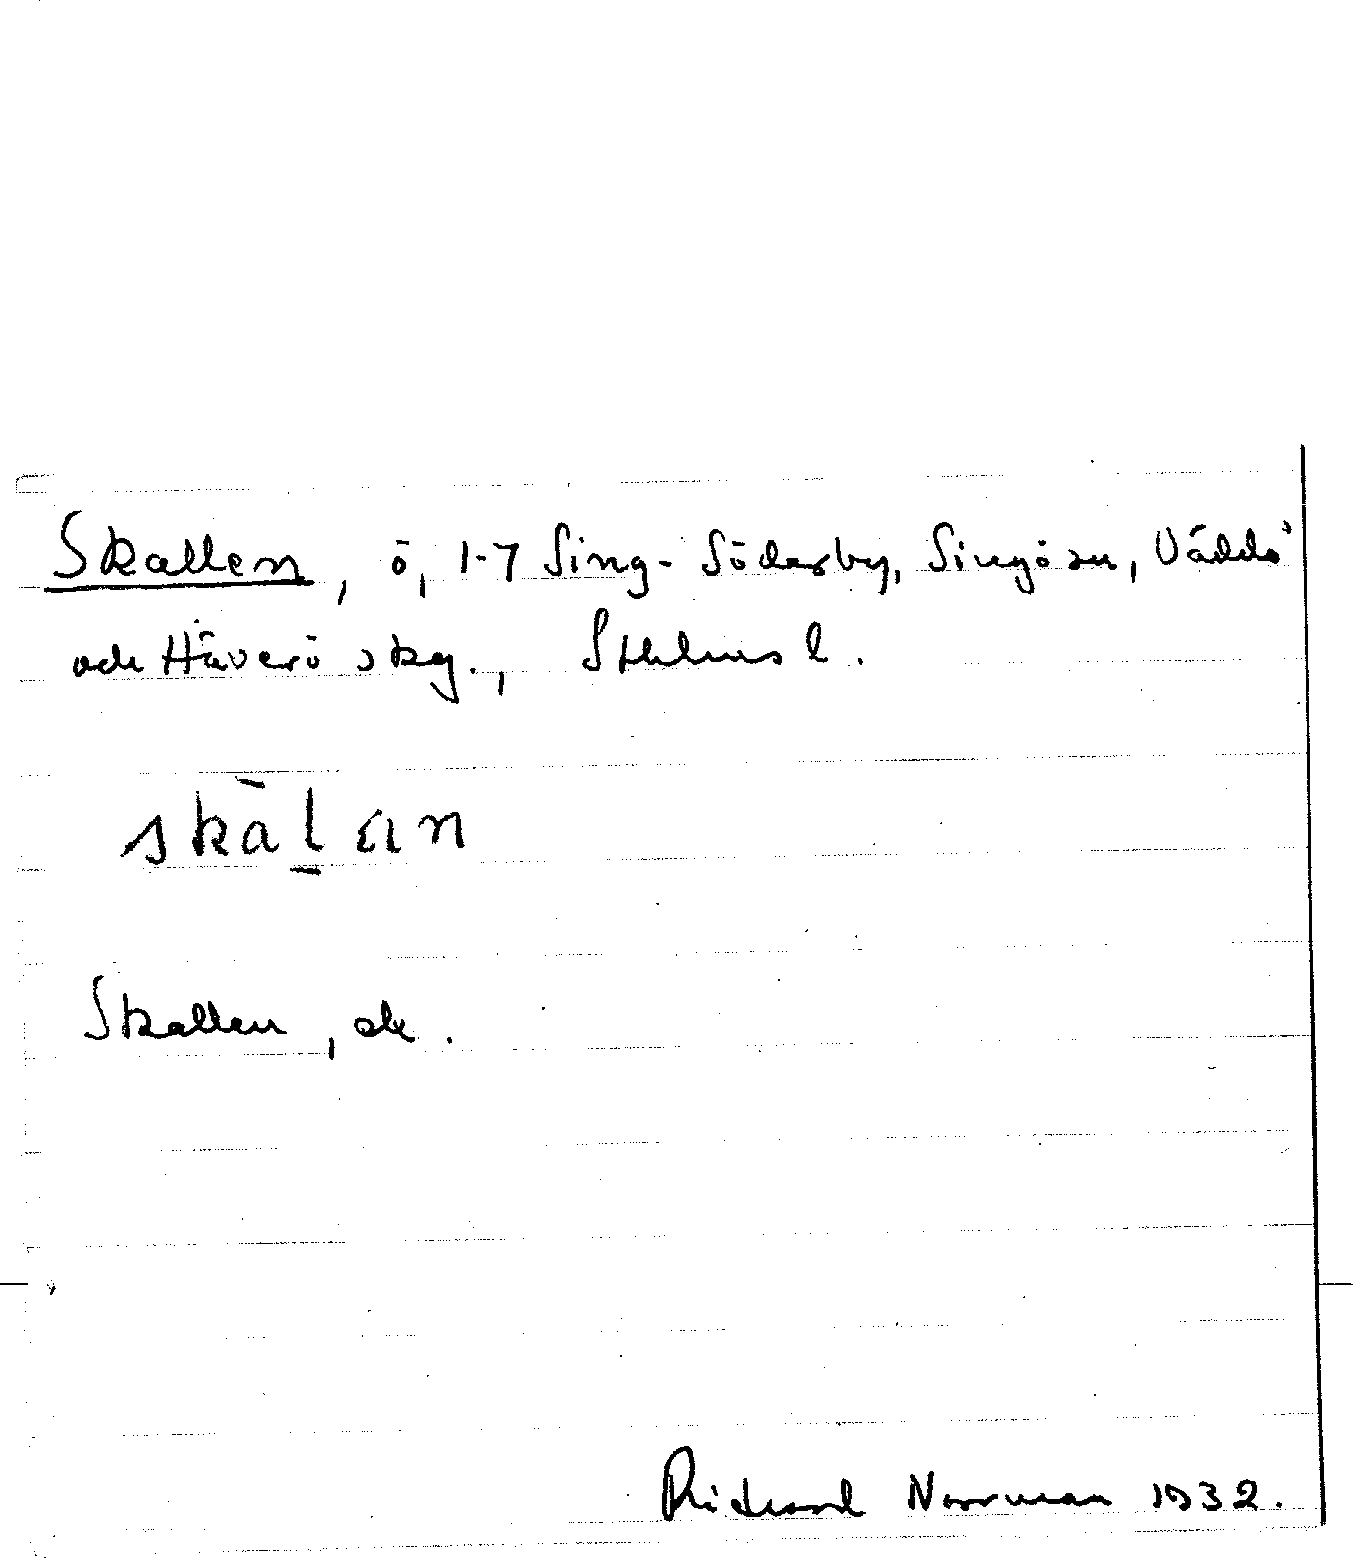 Skallen, ö, 1-7 Sing-Söderby, Singö sn, Väddö
och Häverö skg., Sthlms l.
skàl̠an
Skallen, ek.
Richard Norrman 1932.